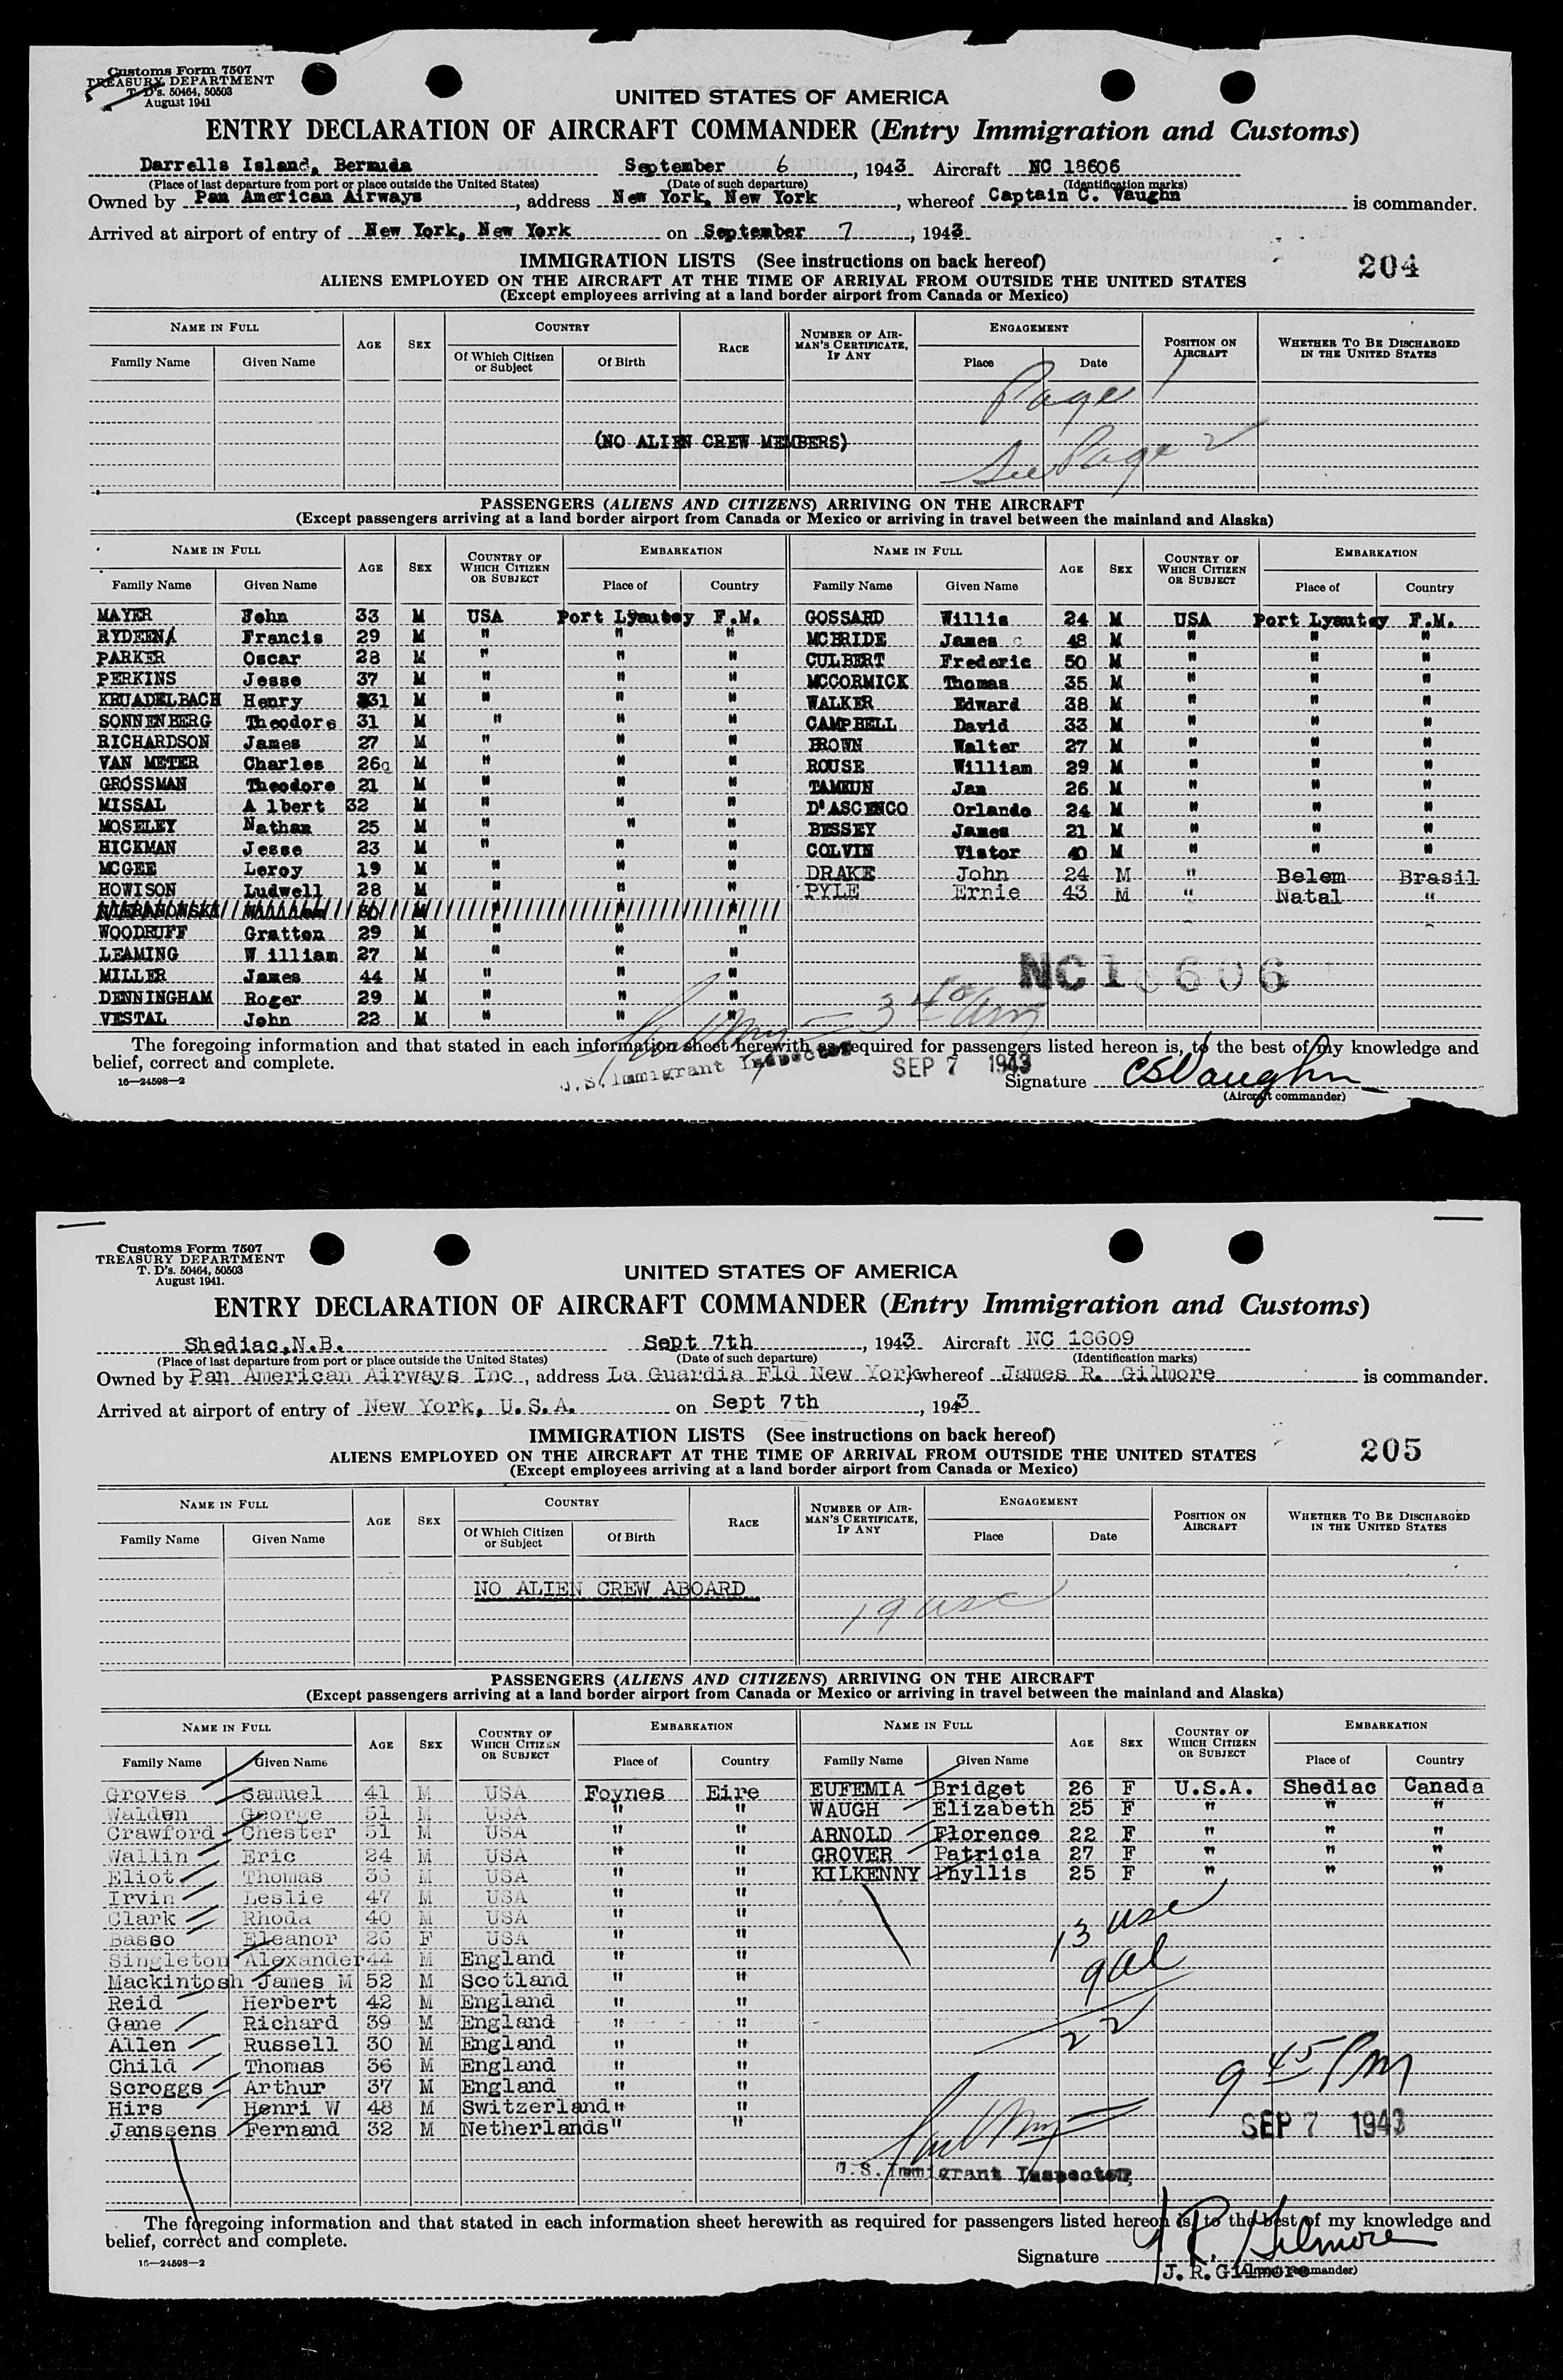 Customs Form 7507
TREASURY DEPARTMENT
T. D's. 50464, 50503
August 1941
UNITED STATES OF AMERICA
ENTRY DECLARATION OF AIRCRAFT COMMANDER (Entry Immigration and Customs)
Darrells Island, Bermuda September 6, 1943 Aircraft NC 18606
(Place of last departure from port or place outside the United States) (Date of such departure) (Identification marks)
Owned by Pan American Airways, address New York, New York, whereof Captain C. Vaughn is commander.
Arrived at airport of entry of New York, New York on September 7, 1943
IMMIGRATION LISTS (See instructions on back hereof)
204
ALIENS EMPLOYED ON THE AIRCRAFT AT THE TIME OF ARRIVAL FROM OUTSIDE THE UNITED STATES
(Except employees arriving at a land border airport from Canada or Mexico)
NAME IN FULL AGE SEX COUNTRY RACE NUMBER OF AIRMAN'S CERTIFICATE, IF ANY ENGAGEMENT POSITION ON AIRCRAFT WHETHER TO BE DISCHARGED IN THE UNITED STATES
Family Name Given Name Of Which Citizen or Subject Of Birth Place Date
Page 1
(NO ALIEN CREW MEMBERS)
See Page 2
PASSENGERS (ALIENS AND CITIZENS) ARRIVING ON THE AIRCRAFT
(Except passengers arriving at a land border airport from Canada or Mexico or arriving in travel between the mainland and Alaska)
NAME IN FULL AGE SEX COUNTRY OF WHICH CITIZEN OR SUBJECT EMBARKATION NAME IN FULL AGE SEX COUNTRY OF WHICH CITIZEN OR SUBJECT EMBARKATION
Family Name Given Name Place of Country Family Name Given Name Place of Country
MAYER John 33 M USA Port Lyautey F.M. GOSSARD Willis 24 M USA Port Lyautey F.M.
RYDEENA Francis 29 M " " " MCBRIDE James C 48 M " " "
PARKER Oscar 28 M " " " CULBERT Frederic 50 M " " "
PERKINS Jesse 37 M " " " MCCORMICK Thomas 35 M " " "
KRUADELBACH Henry 31 M " " " WALKER Edward 38 M " " "
SONNENBERG Theodore 31 M " " " CAMPBELL David 33 M " " "
RICHARDSON James 27 M " " " BROWN Walter 27 M " " "
VAN METER Charles 26 M " " " ROUSE William 29 M " " "
GROSSMAN Theodore 21 M " " " TAMKUN Jan 26 M " " "
MISSAL A lbert 32 M " " " D'ASCENCO Orlando 24 M " " "
MOSELEY Nathan 25 M " " " BESSEY James 21 M " " "
HICKMAN Jesse 23 M " " " COLVIN Viator 40 M " " "
MCGEE Leroy 19 M " " " DRAKE John 24 M " Belem Brasil
HOWISON Ludwell 28 M " " " PYLE Ernie 43 M " Natal "
30 M " " "
WOODRUFF Gratten 29 M " " "
LEAMING W illiam 27 M " " "
MILLER James 44 M " " " NC18606
DENNINGHAM Roger 29 M " " "
VESTAL John 22 M " " "
3 40 am
The foregoing information and that stated in each information sheet herewith as required for passengers listed hereon is, to the best of my knowledge and
belief, correct and complete.
U.S. Immigrant Inspector SEP 7 1943
16—24598—2
Signature CSVaughn
(Aircraft commander)
Customs Form 7507
TREASURY DEPARTMENT
T. D's. 50464, 50503
August 1941.
UNITED STATES OF AMERICA
ENTRY DECLARATION OF AIRCRAFT COMMANDER (Entry Immigration and Customs)
Shediac,N.B. Sept 7th, 1943 Aircraft NC 18609
(Place of last departure from port or place outside the United States) (Date of such departure) (Identification marks)
Owned by Pan American Airways Inc, address La Guardia Fld New York, whereof James R. Gilmore is commander.
Arrived at airport of entry of New York, U.S.A. on Sept 7th, 1943
IMMIGRATION LISTS (See instructions on back hereof)
205
ALIENS EMPLOYED ON THE AIRCRAFT AT THE TIME OF ARRIVAL FROM OUTSIDE THE UNITED STATES
(Except employees arriving at a land border airport from Canada or Mexico)
NAME IN FULL AGE SEX COUNTRY RACE NUMBER OF AIRMAN'S CERTIFICATE, IF ANY ENGAGEMENT POSITION ON AIRCRAFT WHETHER TO BE DISCHARGED IN THE UNITED STATES
Family Name Given Name Of Which Citizen or Subject Of Birth Place Date
NO ALIEN CREW ABOARD
19 usc
PASSENGERS (ALIENS AND CITIZENS) ARRIVING ON THE AIRCRAFT
(Except passengers arriving at a land border airport from Canada or Mexico or arriving in travel between the mainland and Alaska)
NAME IN FULL AGE SEX COUNTRY OF WHICH CITIZEN OR SUBJECT EMBARKATION NAME IN FULL AGE SEX COUNTRY OF WHICH CITIZEN OR SUBJECT EMBARKATION
Family Name Given Name Place of Country Family Name Given Name Place of Country
Groves Samuel 41 M USA Foynes Eire EUFEMIA Bridget 26 F U.S.A. Shediac Canada
Walden George 51 M USA " " WAUGH Elizabeth 25 F " " "
Crawford Chester 51 M USA " " ARNOLD Florence 22 F " " "
Wallin Eric 24 M USA " " GROVER Patricia 27 F " " "
Eliot Thomas 36 M USA " " KILKENNY Phyllis 25 F " " "
Irvin Leslie 47 M USA " "
Clark Rhoda 40 M USA " " 13 usc
Basso Eleanor 26 F USA " "
Singleton Alexander 44 M England " " 9 al
Mackintosh James M 52 M Scotland " "
Reid Herbert 42 M England " "
Gane Richard 39 M England " " 22
Allen Russell 30 M England " "
Child Thomas 36 M England " "
Scroggs Arthur 37 M England " " 9 45 PM
Hirs Henri W 48 M Switzerland " "
Janssens Fernand 32 M Netherlands " " SEP 7 1943
U.S. Immigrant Inspector
The foregoing information and that stated in each information sheet herewith as required for passengers listed hereon is, to the best of my knowledge and
belief, correct and complete.
16—24598—2
Signature J R. Gilmore
J. R. Gilmore (Aircraft commander)